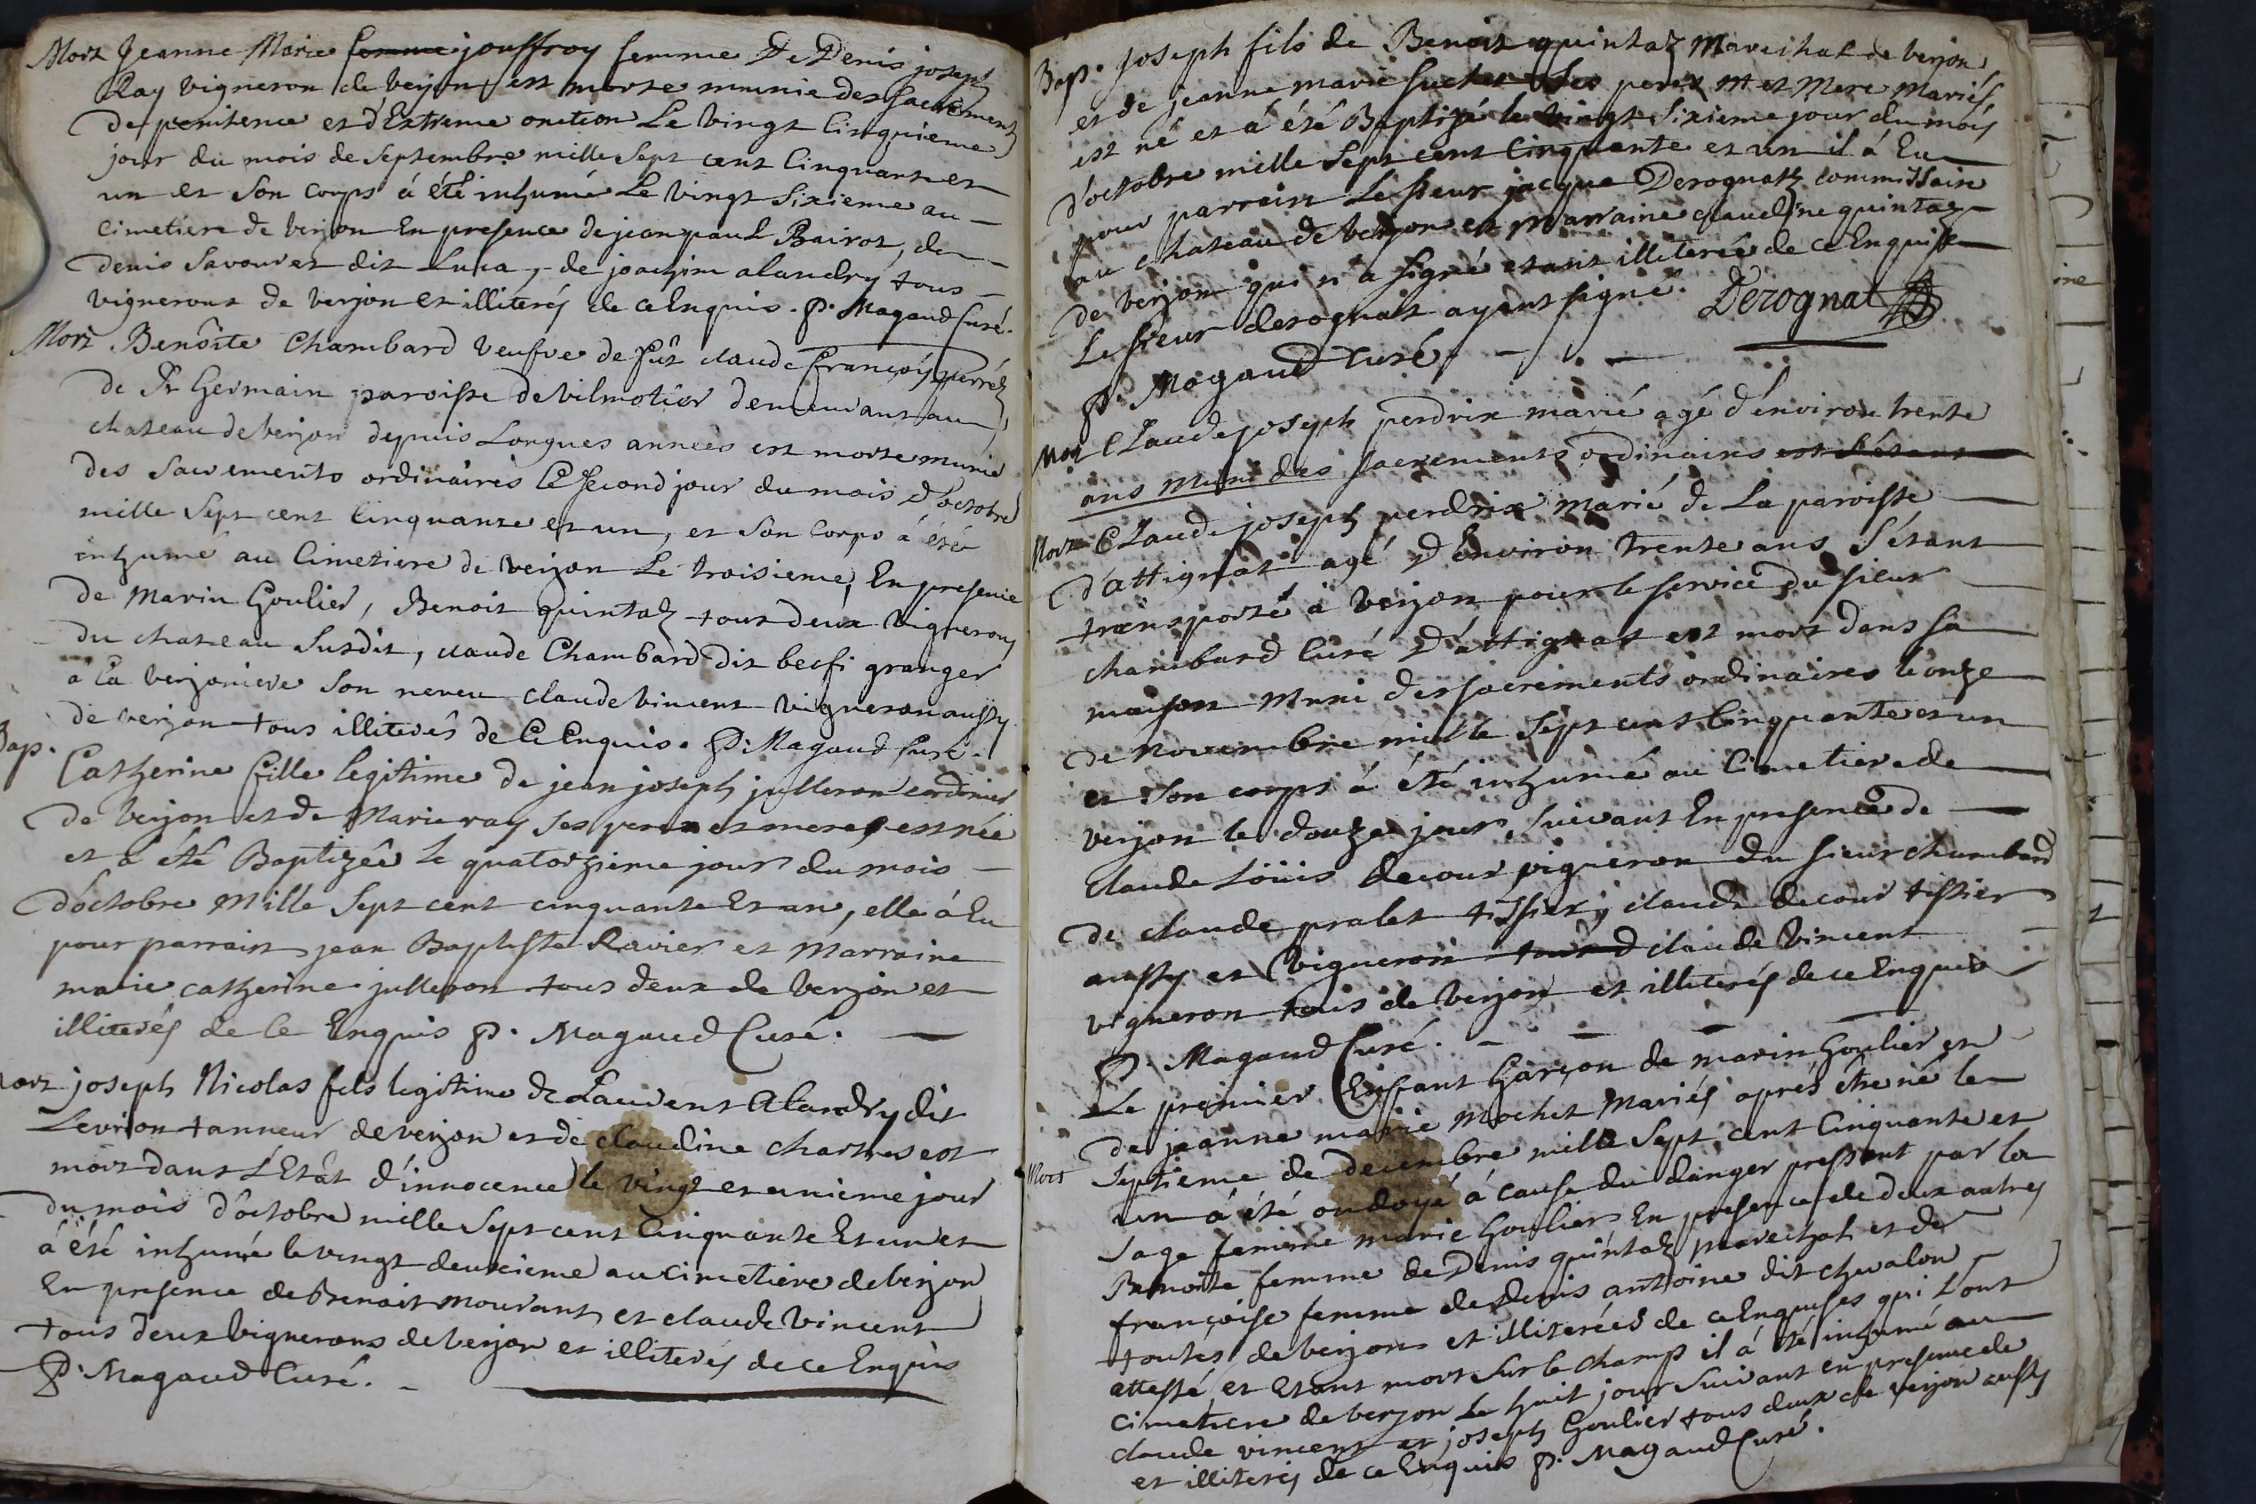 Mort Jeanne Marie femme jouffroy femme De Denis joseph
Ray vigneron de verjon est morte munie des sacrements
de penitence et d'Extreme onction Le vingt Cinquieme
jour du mois de Septembre mille Sept cent Cinquante et
un et Son corps à été inhumé Le vingt Sixieme au
Cimetiere de verjon En presence de jean paul Bairot, de
denis Savouret dit Luca, de joachim alandry tous
vignerons de verjon et illiterés de ce Enquis. P. Magaud Curé.
Mort Benoîte Chambard veufve de fût claude François perrés
de St Germain paroisse de vilmotier demeurant au
chateau de verjon depuis Longues années est morte munie
des Sacrements ordinaires Le Second jour du mois d'octobre
mille Sept cent Cinquante et un, et Son corps à été
inhumé au Cimetiere de verjon Le troisieme, En presence
de Marin Goulier, Benoit quintaz tous deux vignerons
du chateau Susdit, claude Chambard dit besfi granger
a La verjoniere Son neveu claude vincent vigneron aussy
de verjon tous illiterés de Ce Enquis. P. Magaud Curé.
Bap. Catherine fille legitime de jean joseph julleron cordonier
de verjon et de Marie ray Ses peres et meres est née
et à été Baptizée Le quatorzieme jour du mois
d'octobre Mille Sept cent cinquante Et un, elle à Eu
pour parrain jean Baptiste Ravier et Marraine
marie catherine julleron tous deux de verjon et
illiterés de Ce Enquis P. Magaud Curé.
Mort joseph Nicolas fils legitime de Laurent Alandry dit
Levrion tanneur de verjon et de claudine chartres est
mort dans L'Etat d'innocence le vingt et unieme jour
du mois d'octobre mille Sept cent Cinquante Et un et
à été inhumé le vingt deuxieme au cimetiere de verjon
En presence de Benoit mourant et claude vincent
tous deux vignerons de verjon et illiterés de ce Enquis
P. Magaud Curé.
Bap. Joseph fils de Benoit quintaz Marechal de verjon
et de jeanne marie Suchet Ses peres et Mere Mariés
est né et à été Baptizé le vingt Sixieme jour du mois
d'octobre mille Sept cent Cinquante et un il à Eu
pour parrain Le Sieur jacque Derognat commissaire
au chateau de verjon et marraine claudine quintaz
de verjon qui n'a signé etant illiterée de ce Enquise
Le Sieur derognat ayant signé. Derognat
P. Magaud Curé.
Mort Claude joseph perdrix marié agé d'environ trente
ans muni des sacrements ordinaires est s'étant
Mort Claude joseph perdrix marié de La paroisse
d'attignat agé d'Environ trente ans s'étant
transporté à verjon pour le service du sieur
chambard Curé d'attignat est mort dans sa
maison muni des sacrements ordinaires le onze
de novembre mille Sept cent Cinquante et un
et Son corps à été inhumé au Cimetiere de
verjon le douze jour suivant En presence de
claude Loüis decour vigneron du sieur chambard
de claude pralet tissier, claude decour tissier
aussy et vigneron tous d claude vincent
vigneron tous de verjon et illiterés de ce Enquis
P. Magaud Curé.
Le premier Enfant Garçon de marin Goulier et
de jeanne marie mochet Mariés aprés être né le
Mort Septieme de decembre mille Sept cent Cinquante et
un à été ondoyé à cause du danger pressant par la
Sage femme marie Goulier En presence de deux autres
Benoite femme de Denis quintaz marechal et de
françoise femme de Denis antoine dit chevalon
toutes de verjon et illiterées de ce Enquises qui L'ont
attesté, et Etant mort Sur le champ il à été inhumé au
Cimetiere de verjon Le huit jour Suivant en presence de
claude vincent et joseph Goulier tous deux de verjon aussy
et illiterés de ce Enquis P. Magaud Curé.